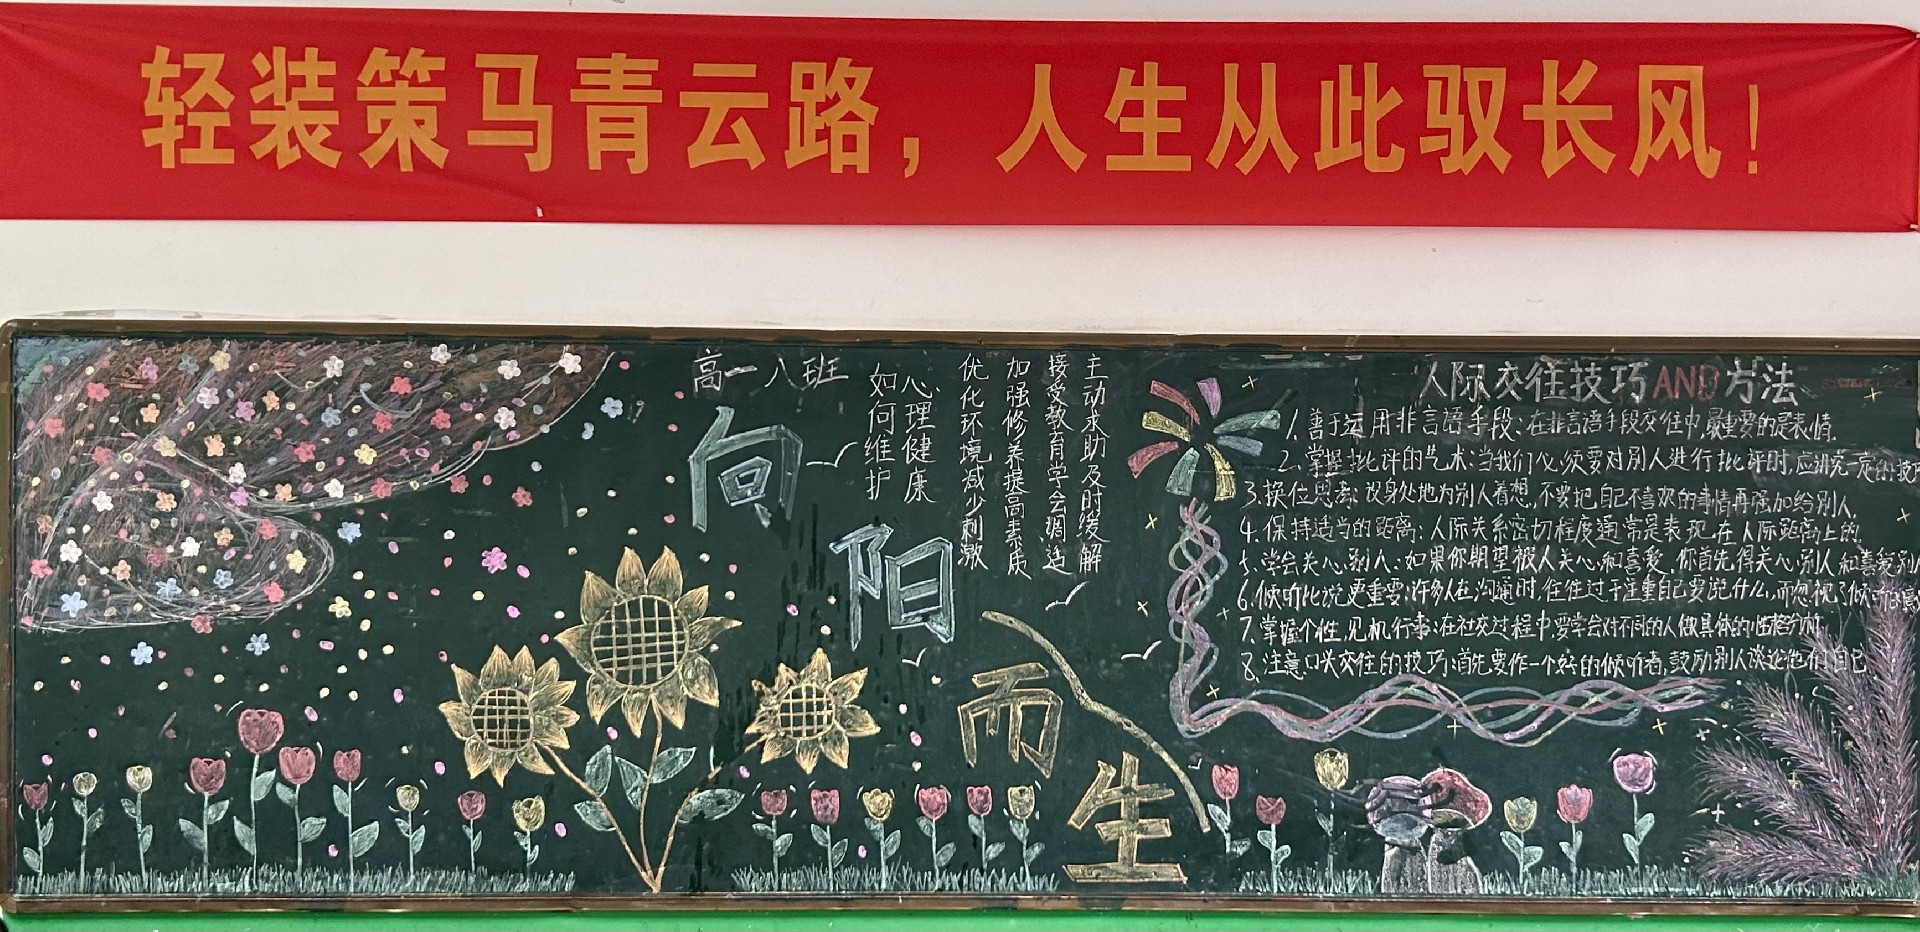 轻装策马青云路，人生从此驭长风！
高一八班
向阳而生
心理健康
如何维护
主动求助及时缓解
接受教育学会调适
加强修养提高素质
优化环境减少刺激
人际交往技巧AND方法
1.善于运用非言语手段：在非言语手段交往中，最重要的是表情.
2.掌握批评的艺术：当我们必须要对别人进行批评时，应讲究一定的技巧
3.换位思考：设身处地为别人着想，不要把自己不喜欢的事情再强加给别人.
4.保持适当的距离：人际关系密切程度通常是表现在人际距离上的.
5.学会关心别人：如果你期望被人关心和喜爱，你首先得关心别人和喜爱别人
6.倾听比说更重要：许多人在沟通时，往往过于注重自己要说什么，而忽视了倾听
7.掌握个性，见机行事：在社交过程中，要学会对不同的人做具体的性格分析
8.注意口头交往的技巧：首先要作一个好的倾听者，鼓励别人谈论他们自己